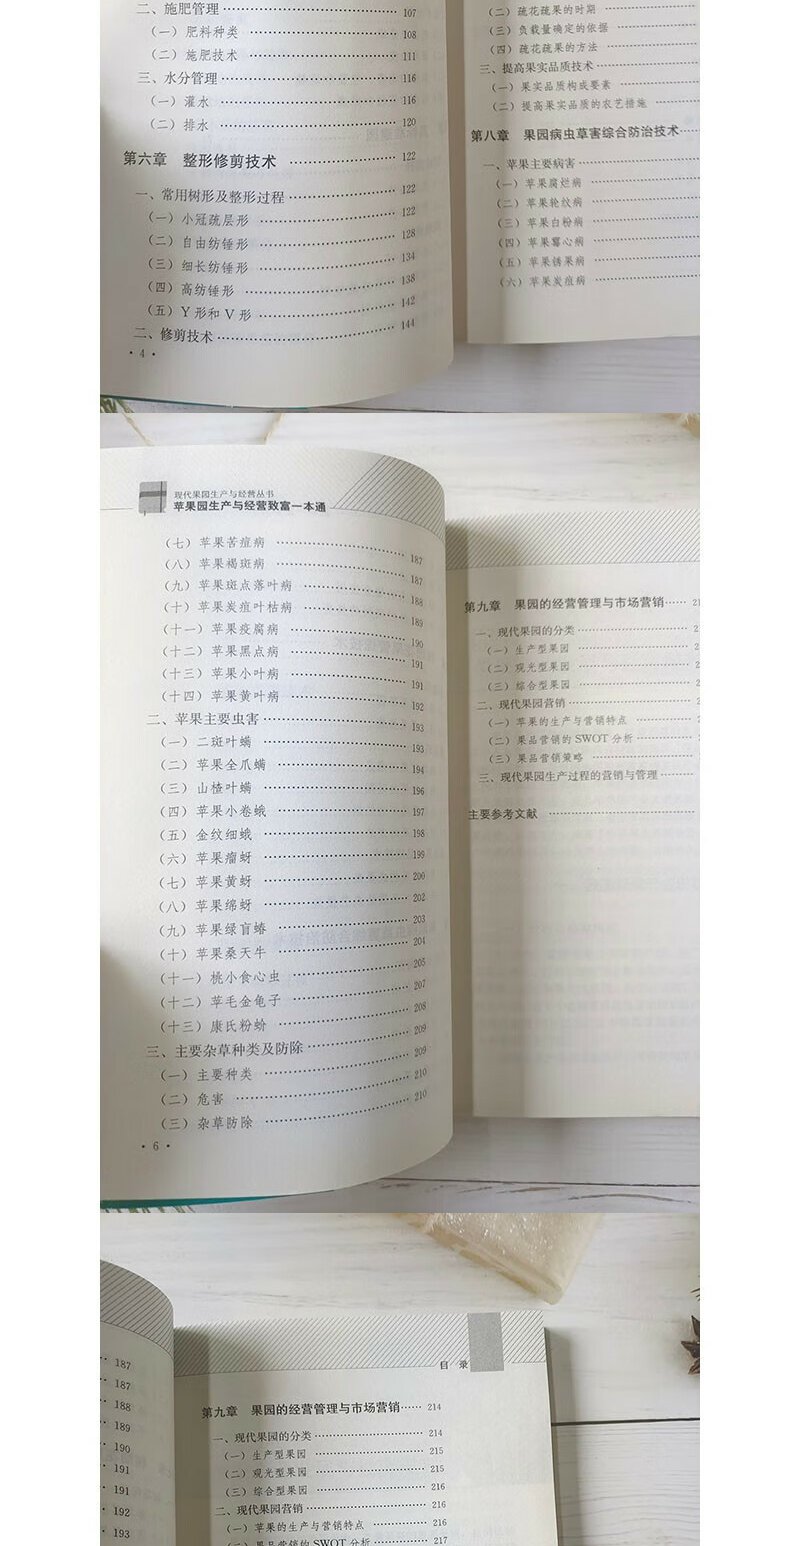 二、施肥管理 107
（一）肥料种类 108
（二）施肥技术 111
三、水分管理 116
（一）灌水 116
（二）排水 120
第六章 整形修剪技术 122
一、常用树形及整形过程 122
（一）小冠疏层形 122
（二）自由纺锤形 128
（三）细长纺锤形 134
（四）高纺锤形 138
（五）Y形和V形 142
二、修剪技术 144
· 4 ·
（二）疏花疏果的时期
（三）负载量确定的依据
（四）疏花疏果的方法
三、提高果实品质技术
（一）果实品质构成要素
（二）提高果实品质的农艺措施
第八章 果园病虫草害综合防治技术
一、苹果主要病害
（一）苹果腐烂病
（二）苹果轮纹病
（三）苹果白粉病
（四）苹果霉心病
（五）苹果锈果病
（六）苹果炭疽病
现代果园生产与经营丛书
苹果园生产与经营致富一本通
（七）苹果苦痘病 187
（八）苹果褐斑病 187
（九）苹果斑点落叶病 188
（十）苹果炭疽叶枯病 189
（十一）苹果疫腐病 190
（十二）苹果黑点病 191
（十三）苹果小叶病 191
（十四）苹果黄叶病 192
二、苹果主要虫害 193
（一）二斑叶螨 193
（二）苹果全爪螨 194
（三）山楂叶螨 196
（四）苹果小卷蛾 197
（五）金纹细蛾 198
（六）苹果瘤蚜 199
（七）苹果黄蚜 200
（八）苹果绵蚜 202
（九）苹果绿盲蝽 203
（十）苹果桑天牛 204
（十一）桃小食心虫 205
（十二）苹毛金龟子 207
（十三）康氏粉蚧 208
三、主要杂草种类及防除 209
（一）主要种类 209
（二）危害 210
（三）杂草防除 210
· 6 ·
第九章 果园的经营管理与市场营销 21
一、现代果园的分类 2
（一）生产型果园 2
（二）观光型果园 2
（三）综合型果园 2
二、现代果园营销 2
（一）苹果的生产与营销特点 2
（二）果品营销的SWOT分析 2
（三）果品营销策略 2
三、现代果园生产过程的营销与管理
主要参考文献
187
187
188
189
190
191
191
192
193
目 录
第九章 果园的经营管理与市场营销 214
一、现代果园的分类 214
（一）生产型果园 215
（二）观光型果园 215
（三）综合型果园 216
二、现代果园营销 216
（一）苹果的生产与营销特点 216
（二）果品营销的SWOT分析 217